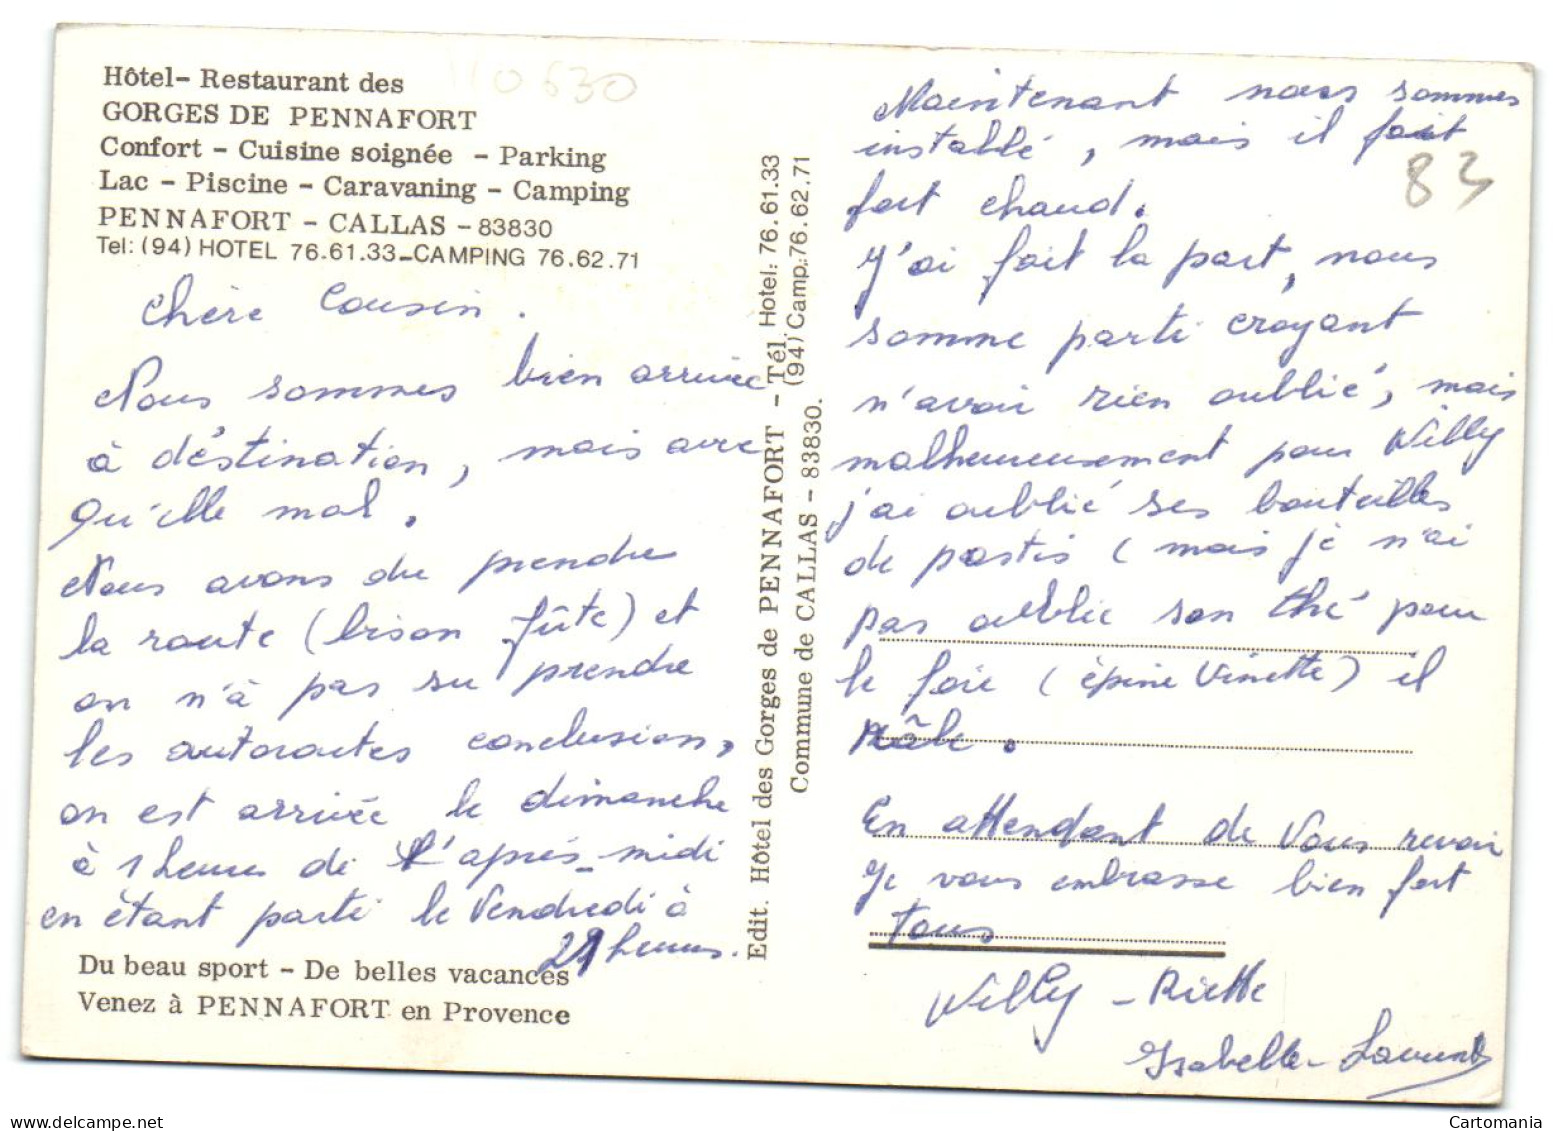 Hôtel- Restaurant des
GORGES DE PENNAFORT
Confort - Cuisine soignée - Parking
Lac - Piscine - Caravaning - Camping
PENNAFORT - CALLAS - 83830
Tel: (94) HOTEL 76.61.33-CAMPING 76.62.71
110630
chère Cousin.
Nous sommes bien arrivée
à déstination, mais avec
qu'elle mal.
Nous avons du prendre
la route (bison fûte) et
on n'à pas su prendre
les autoroutes conclusion,
on est arrivée le dimanche
à 1 heure de l'après-midi
en étant parti le Vendredi à
21 heures.
Du beau sport - De belles vacances
Venez à PENNAFORT en Provence
Edit. Hôtel des Gorges de PENNAFORT - Tél. Hotel: 76.61.33
Commune de CALLAS - 83830. (94) Camp.:76.62.71
Maintenant nous sommes
installé, mais il fait
fort chaud.
83
J'ai fait la part, nous
somme parti croyant
n'avoir rien oublié, mais
malheureusement pour Willy
j'ai oublié ses bouteilles
de pastis (mais je n'ai
pas oublie son thé pour
le foie (épine Vinette) il
râle.
En attendant de Vous revoir
Je vous embrasse bien fort
Tous
Willy - Riette
Isabelle - Laurent
www.delcampe.net
Cartomania